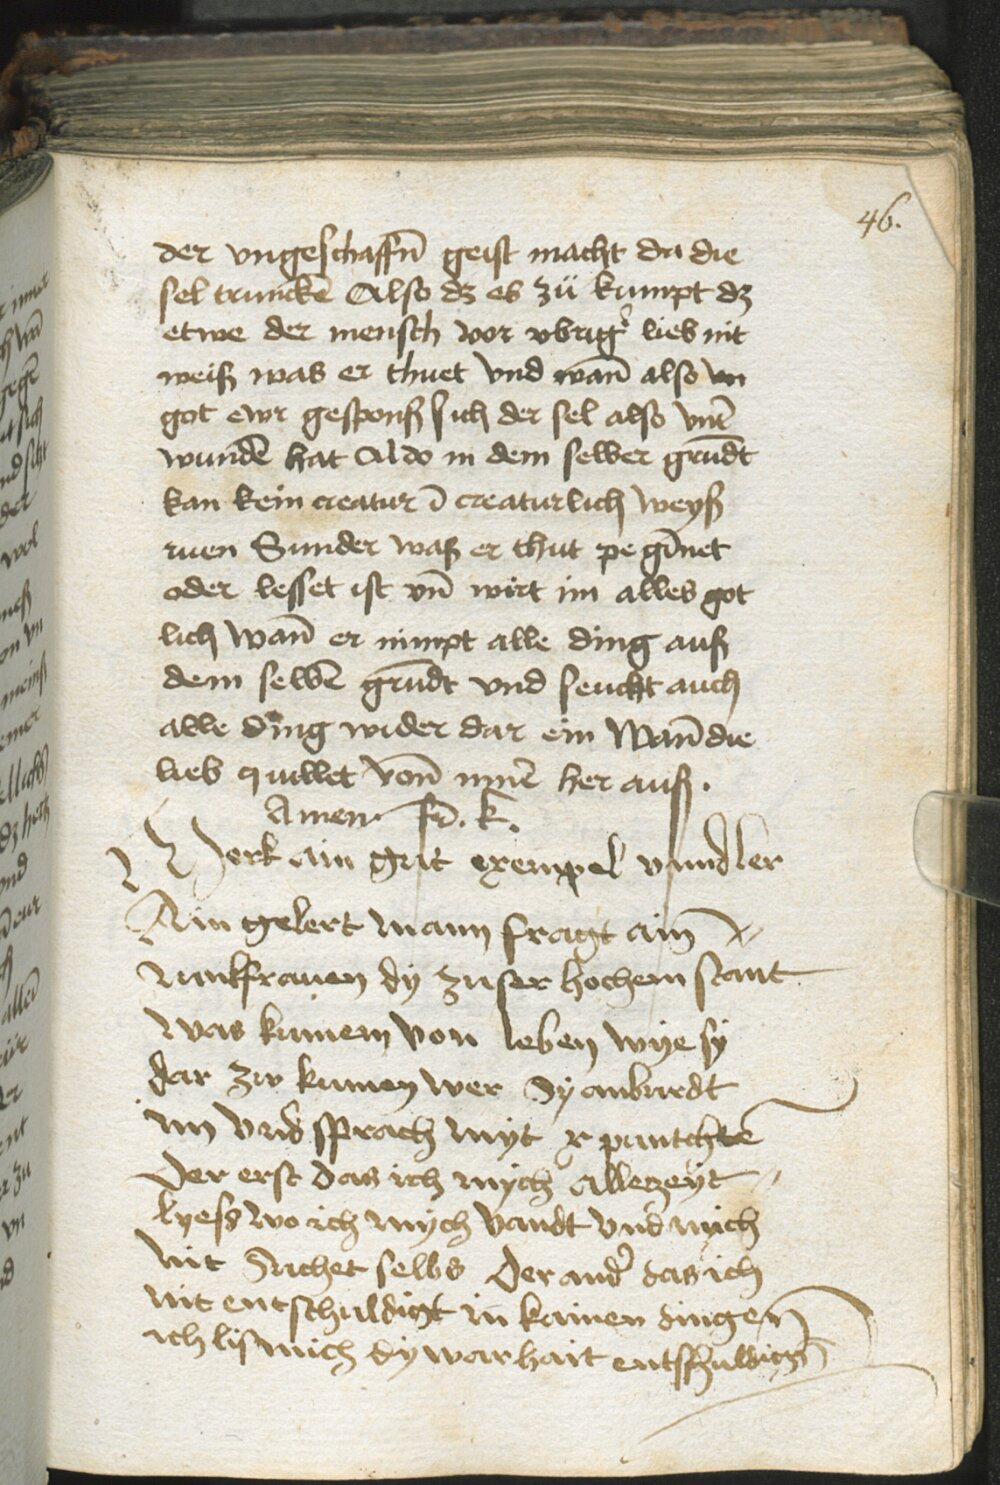 46.
der vngeschaffn̄ geist macht da die
sel trunckē Also dz es zü kumpt dz
etwe der mensch vor vbrig̉ lieb nit
weiß was er thuet vnd wan̄ also vn
got ewr gesponß sich der sel also vnt̄
wundē hat Aldo in dem selber grūdt
kan kein creatur ī creaturlich weyß
ruen Sunder waß er thut pe gīnet
oder lesset ist vn̄ wirt im alles got
lich wan̄ er nimpt alle ding auß
dem selbē grūdt vnd seucht auch
alle ding wider dar ein Wan̄ die
lieb quillet von̄ innē her auß.
Amen.
Merk ain gut exempel
Ain gelert mann fragt ain̄
Junkfrauen dy zu ser hochem stant
was kumem von leben wye sy
dar zw kumen wer Sy antburdt
im vnd sprach myt x puntchtē
Der erst das ich mych allezeyt
lyess wo ich mych vandt vnd mich
nit suchet selbs Der and̉ das ich
nit entschuldigt in kainen dingen
ich lis mich dy warhait entschuldign̄